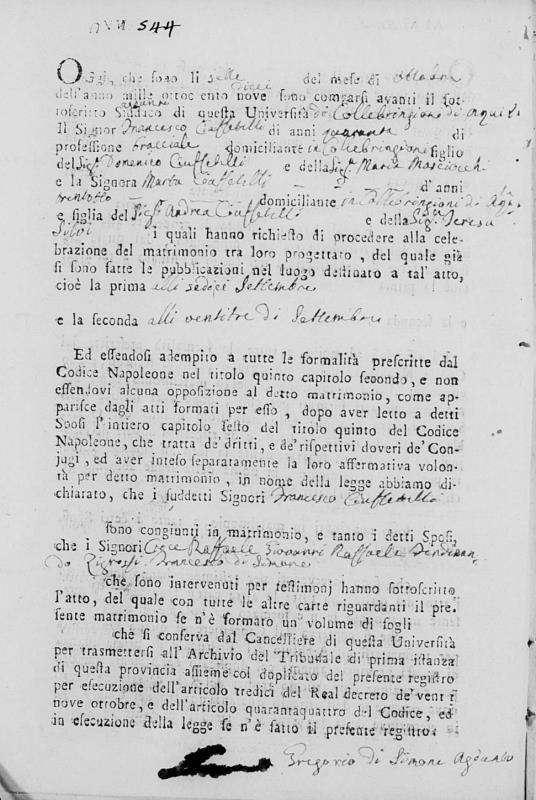 NUM 544
Oggi che sono li sette del mese di ottobre
dieci
dell'anno mille ottocento nove sono comparsi avanti il sot-
aggiunto
toscritto Sindaco di questa Università di Collebrincioni di Aquila
Il Signor Francesco Ciuffetelli di anni quaranta di
professione bracciale domiciliante in Collebrincioni figlio
del Sig. Domenico Ciuffetelli e della Sig. Maria
e la Signora Marta Ciuffetelli d'anni
ventotto domiciliante in Collebrincioni di Aqu.
e figlia del Sig. Andrea Ciuffetelli e della Sig. Teresa
Silvi i quali hanno richiesto di procedere alla cele-
brazione del matrimonio tra loro progettato, del quale già
si sono fatte le pubblicazioni nel luogo destinato a tal'atto,
cioè la prima alli sedici Settembre
e la seconda alli ventitre di Settembre
Ed essendosi adempito a tutte le formalità prescritte dal
Codice Napoleone nel titolo quinto capitolo secondo, e non
essendovi alcuna opposizione al detto matrimonio, come ap-
parisce dagli atti formati per esso, dopo aver letto a detti
Sposi l'intiero capitolo sesto del titolo quinto del Codice
Napoleone, che tratta de'dritti, e de'rispettivi doveri de'Con-
jugi, ed aver inteso separatamente la loro affermativa volon-
tà per detto matrimonio, in nome della legge abbiamo di-
chiarato, che i suddetti Signori Francesco Ciuffetelli
sono congiunti in matrimonio, e tanto i detti Sposi,
che i Signori Raffaele Giovanni Raffaele Ferdinan-
do Francesco di Simone
che sono intervenuti per testimonj hanno sottoscritto
l'atto, del quale con tutte le altre carte riguardanti il pre-
sente matrimonio se n'è formato un volume di fogli
che si conserva dal Cancelliere di questa Università
per trasmettersi all'Archivio del Tribunale di prima istanza
di questa provincia assieme col duplicato del presente registro
per esecuzione dell'articolo tredici del Real decreto de'venti
nove ottobre, e dell'articolo quarantaquattro del Codice, ed
in esecuzione della legge se n'è fatto il presente registro.
Gregorio di Simone Aggiunto